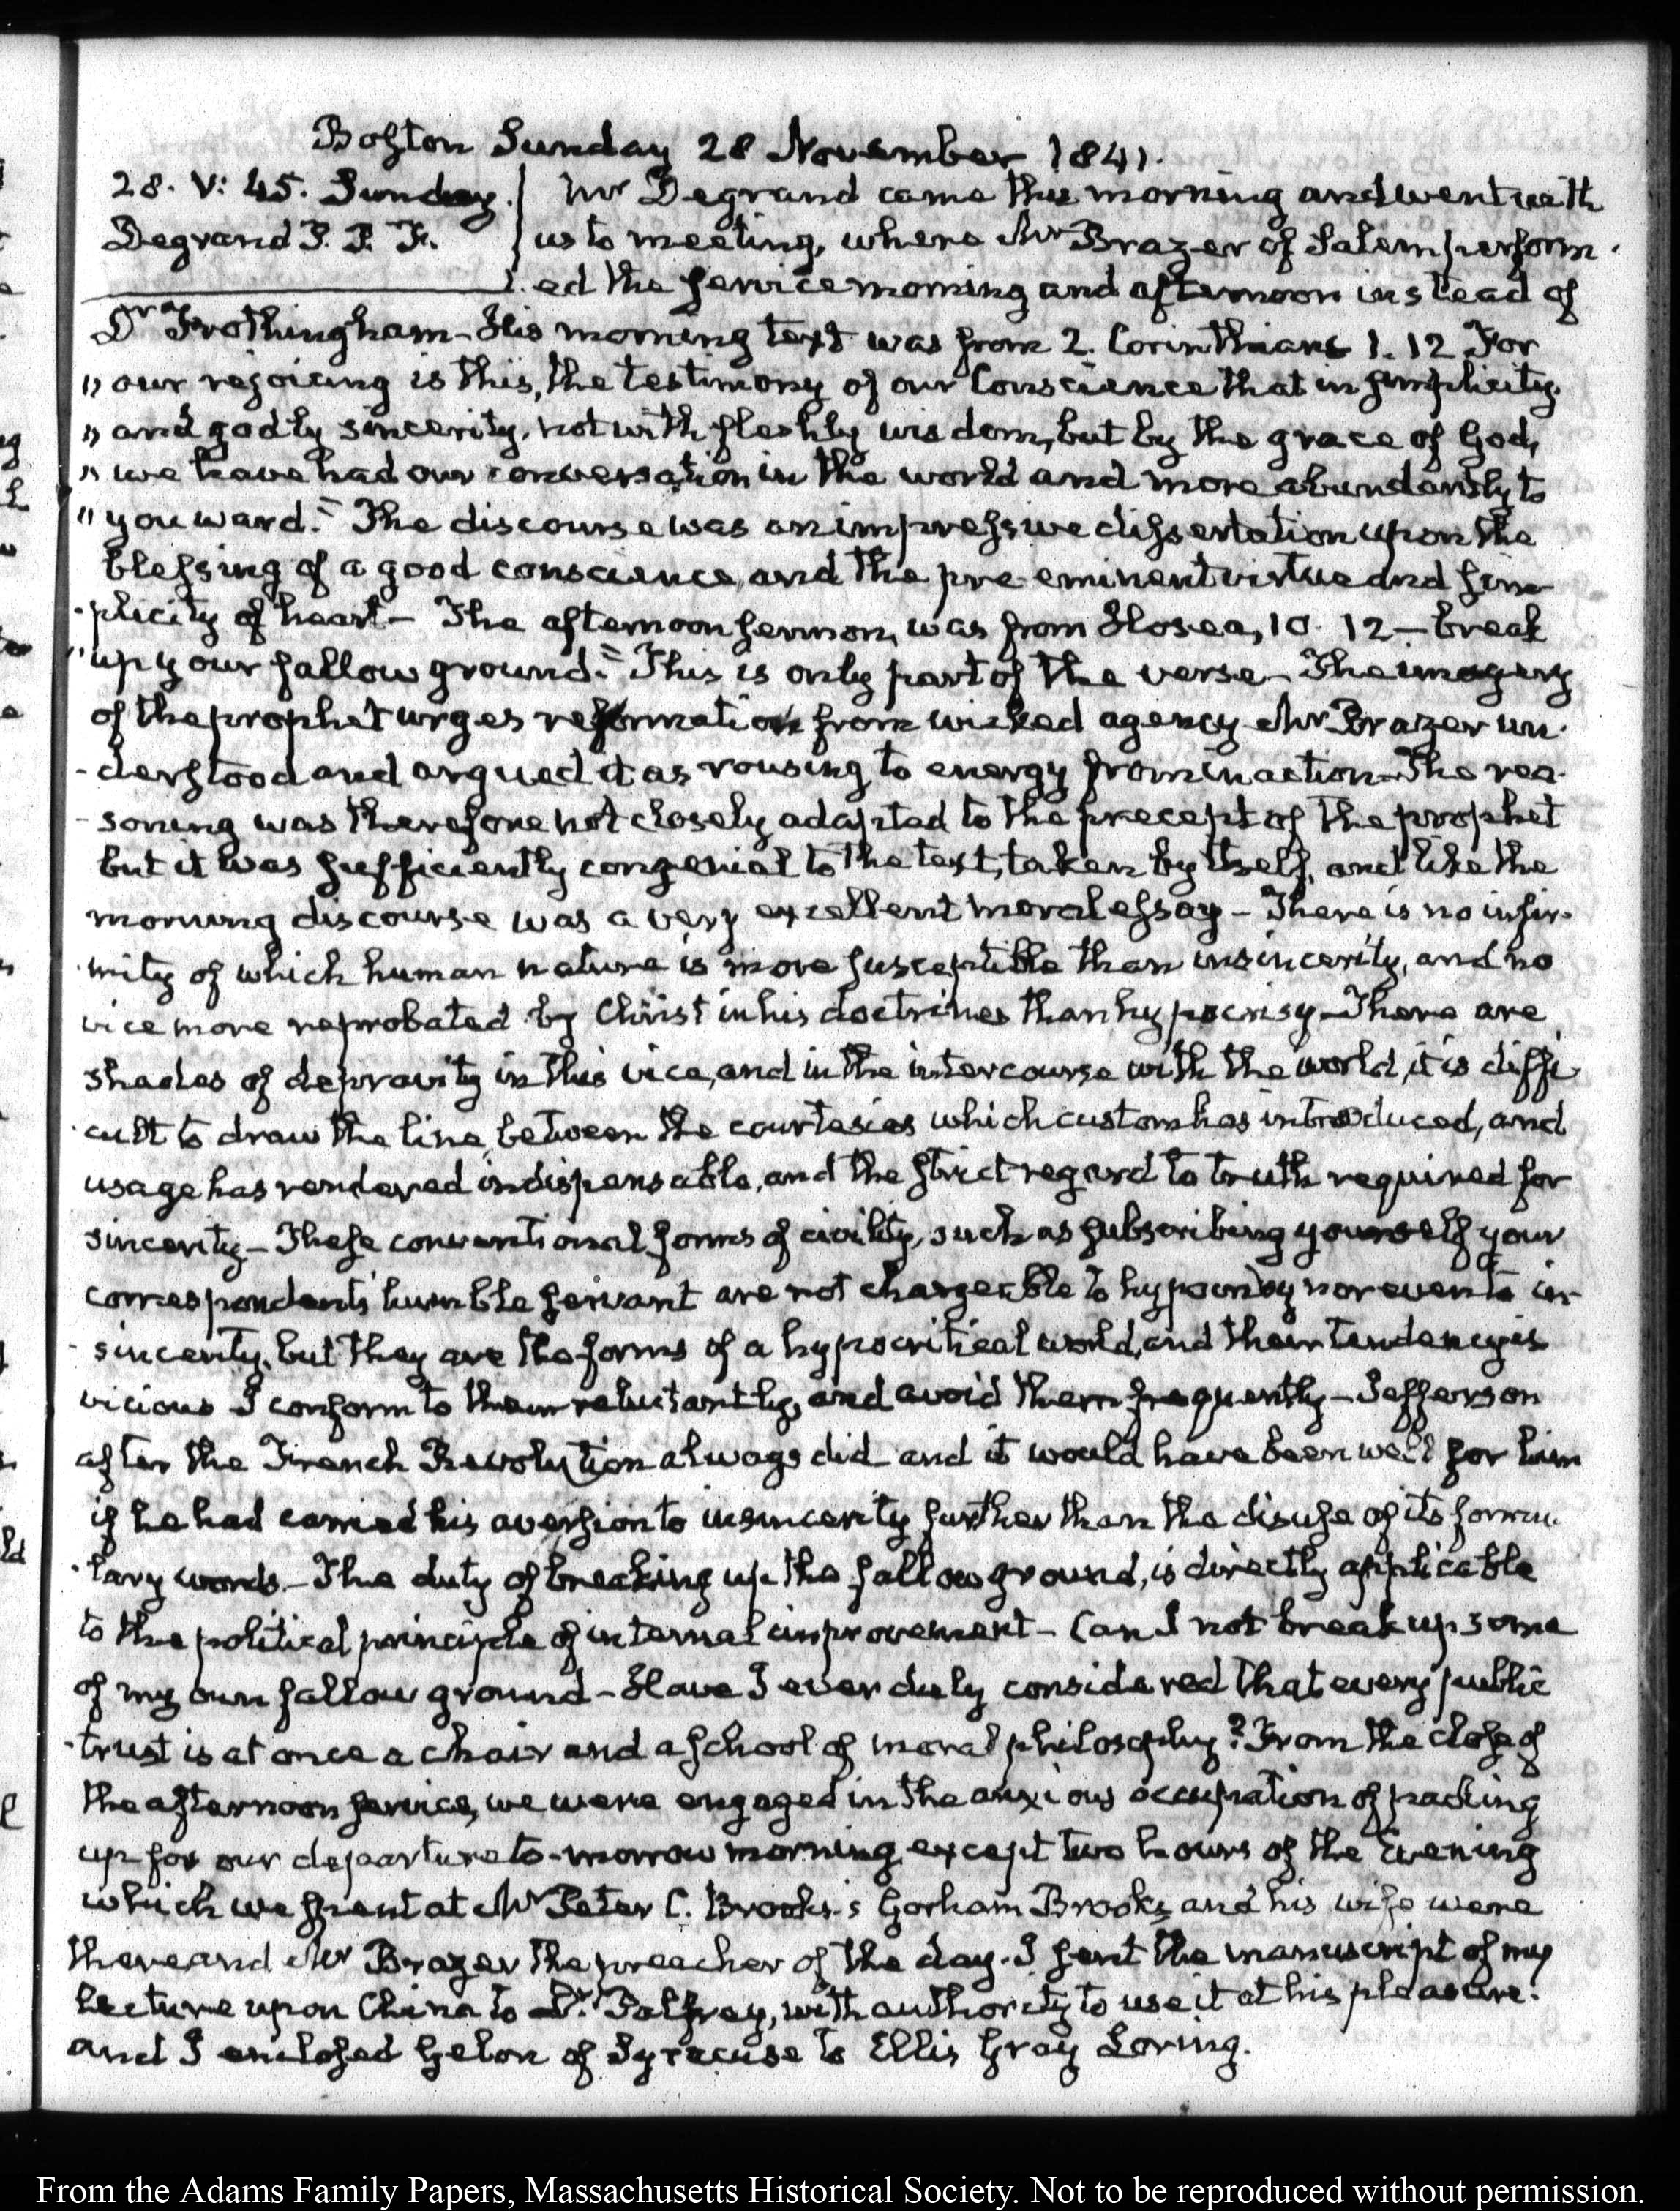 Boston Sunday 28 November 1841.
28. V: 45. Sunday.
Degrand P. P. F.
Mr Degrand came this morning and went with
us to meeting, where Mr Brazer of Salem perform-
-ed the service morning and afternoon instead of
Dr Frothingham - His morning text was from 2. Corinthians 1. 12 For
"our rejoicing is this, the testimony of our Conscience that in simplicity
"and godly sincerity, not with fleshly wisdom, but by the grace of God,
"we have had our conversation in the world and more abundantly to
"you ward." The discourse was an impressive dissertation upon the
blessing of a good conscience, and the pre-eminent virtue and sim-
-plicity of heart - The afternoon sermon, was from Hosea, 10. 12 - break
"up your fallow ground." This is only part of the verse - The imagery
of the prophet urges reformation from wicked agency Mr Brazer un-
-derstood and argued it as rousing to energy from inaction - The rea-
-soning was therefore not closely adapted to the precept of the prophet
but it was sufficiently congenial to the text, taken by itself, and like the
morning discourse was a very excellent moral essay - There is no infir-
-mity of which human nature is more susceptible than insincerity, and no
vice more reprobated by Christ in his doctrines than hypocrisy - There are
shades of depravity in this vice, and in the intercourse with the world, it is diffi-
-cult to draw the line, between the courtesies which custom has introduced, and
usage has rendered indispensable, and the strict regard to truth required for
sincerity - These conventional forms of civility, such as subscribing yourself your
correspondents' humble servant are not chargeable to hypocrisy nor even to in-
-sincerity, but they are the forms of a hypocritical world, and their tendency is
vicious I conform to them reluctantly, and avoid them frequently - Jefferson
after the French Revolution always did and it would have been well for him
if he had carried his aversion to insincerity further than the disuse of its formu-
-lary words - The duty of breaking up the fallow ground, is directly applicable
to the political principle of internal improvement - Can I not break up some
of my own fallow ground - Have I ever duly considered that every public
trust is at once a chair and a school of moral philosophy? From the close of
the afternoon service, we were engaged in the anxious occupation of packing
up for our departure to-morrow morning except two hours of the Evening
which we spent at Mr Peter C. Brooks's Gorham Brooks and his wife were
there and Mr Brazer the preacher of the day. I sent the manuscript of my
Lecture upon China to Dr. Palfrey, with authority to use it at his pleasure.
and I enclosed Gelon of Syracuse to Ellis Gray Loring.
From the Adams Family Papers, Massachusetts Historical Society. Not to be reproduced without permission.